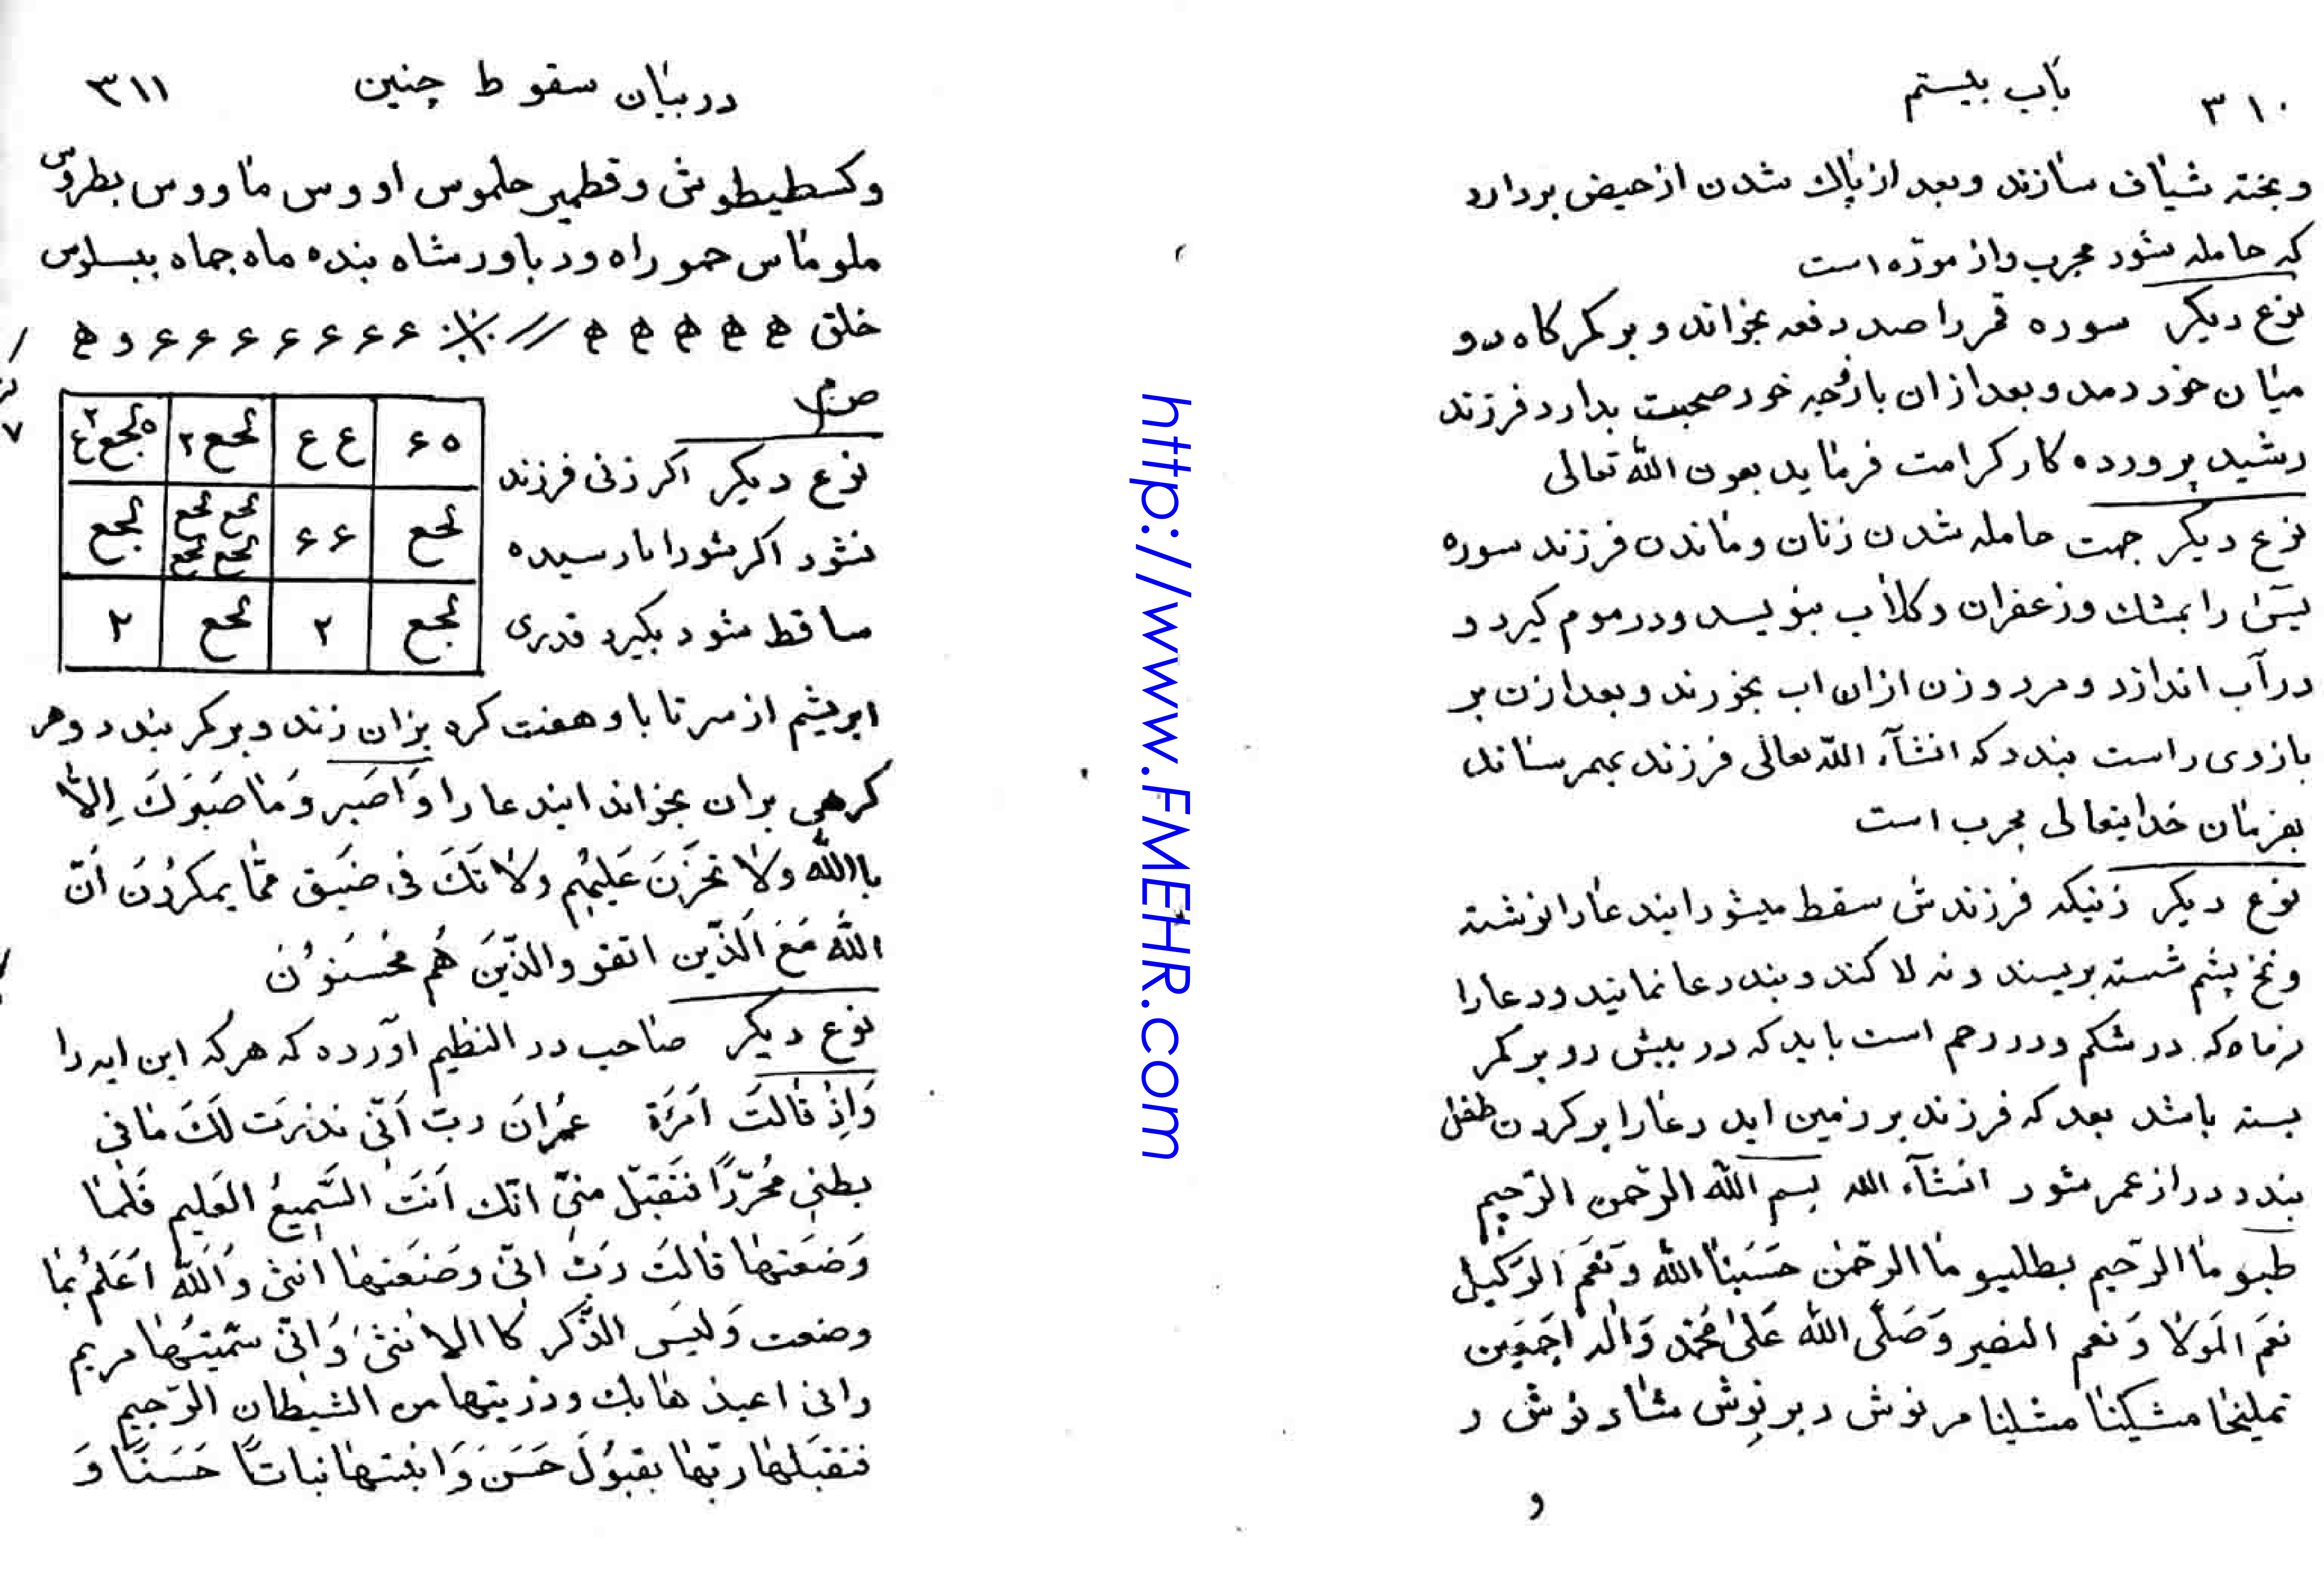 باب بیستم ۳۱۰
و بخته شیاف سازند و بعد از پاك شدن از حیض بردارد
که حامله شود مجرب و از موده است
نوع دیکر سوره قمر را صد دفعه بخواند و بر کمر کاه دو
میان خود دمد و بعد از ان بازوجه خود صحبت بدارد فرزند
رشید پرورده کار کرامت فرماید بعون الله تعالی
نوع دیکر جهت حامله شدن زنان و ماندن فرزند سوره
یس را بمشك و زعفران و کلاب بنویسد و در موم کیرد و
در آب اندازد و مرد و زن از ان اب بخورند و بعد از ن بر
بازوی راست بندد که انشآء الله تعالی فرزند بهمرساند
بفرمان خدایتعالی مجرب است
نوع دیکر زنیکه فرزندش سقط میشود ایند عا را نوشته
و نخ پشم شسته بریسند و نه لا کند و بند دعا نمایند و دعا را
در شکم و در رحم است باید که در پیش رو بر کمر
بسته باشد بعد که فرزند بر زمین اید دعا را بر کردن طفل
بندد دراز عمر شود انشآء الله بسم الله الرّحمن الرّحیم
طبیو ما الرّحیم بطلیبو ما الرحمن حَسَبنا الله وَ نعمَ الوَکیل
نعمَ المَولا وَ نعم النصیر وَ صَلّی الله عَلی مُحمّد وَ اله اجمَعین
تملیخا مشکینا مشلینا مرنوش دبرنوش شاد نوش و
و
در بیان سقوط چنین ۳۱۱
و کسطیطوش و قطمیر حلموس اووس ماووس بطروس
ملوماس حمو راه ود باور شاه بنده ماه جماه ببسلوس
خلق
ه ع ع ع لجع ۲
لجع ع ع لجع لجع لجع لجع لجع
لجع ۲ لجع ۲
نوع دیکر اکر زنی فرزند
نشود اکر شود انا رسیده
ساقط شود بکیرد قدری
ابریشم از سر تا پا و هفت کره بزان زند و بر کمر بندد و هر
کرهی بران بخواند ایند عا را وَاصَبر وَ مَا صَبَرَكَ اِلّا
با الله وَ لا تَحزَن عَلیهِم وَ لا تَكَ فی ضَیق مّما یمکرُونَ اَنّ
الله مَعَ اَلَّذین اتقو و الَّذینَ هُم مُحسَنوُن
نوع دیکر صاحب در النظیم آورده که هر که این ایه را
وَاِذ قالَتَ اَمرَة عمرانَ ربّ اَنّی نذرَت لَكَ مٰا فی
بطنی مُحَرّرًا فَتَقَبّل منّی انّك اَنَتَ السَّمیعُ العَلیم فَلَمّا
وَضَعَتها قالَتَ رَبّ انّی وضَعَتها انثی وَ الله اَعلَمُ بِما
وضعت وَ لیسَ الذَّکر کا الانثی وَ انّی سَمّیتها مریم
وانی اعیذ ها بك و ذریتها من الشیطان الرّجیم
فتقبَلها ربّها بقبوُلَ حَسَن وَ انبتها نباتاً حَسَنًا وَ
http://www.FMEHR.com